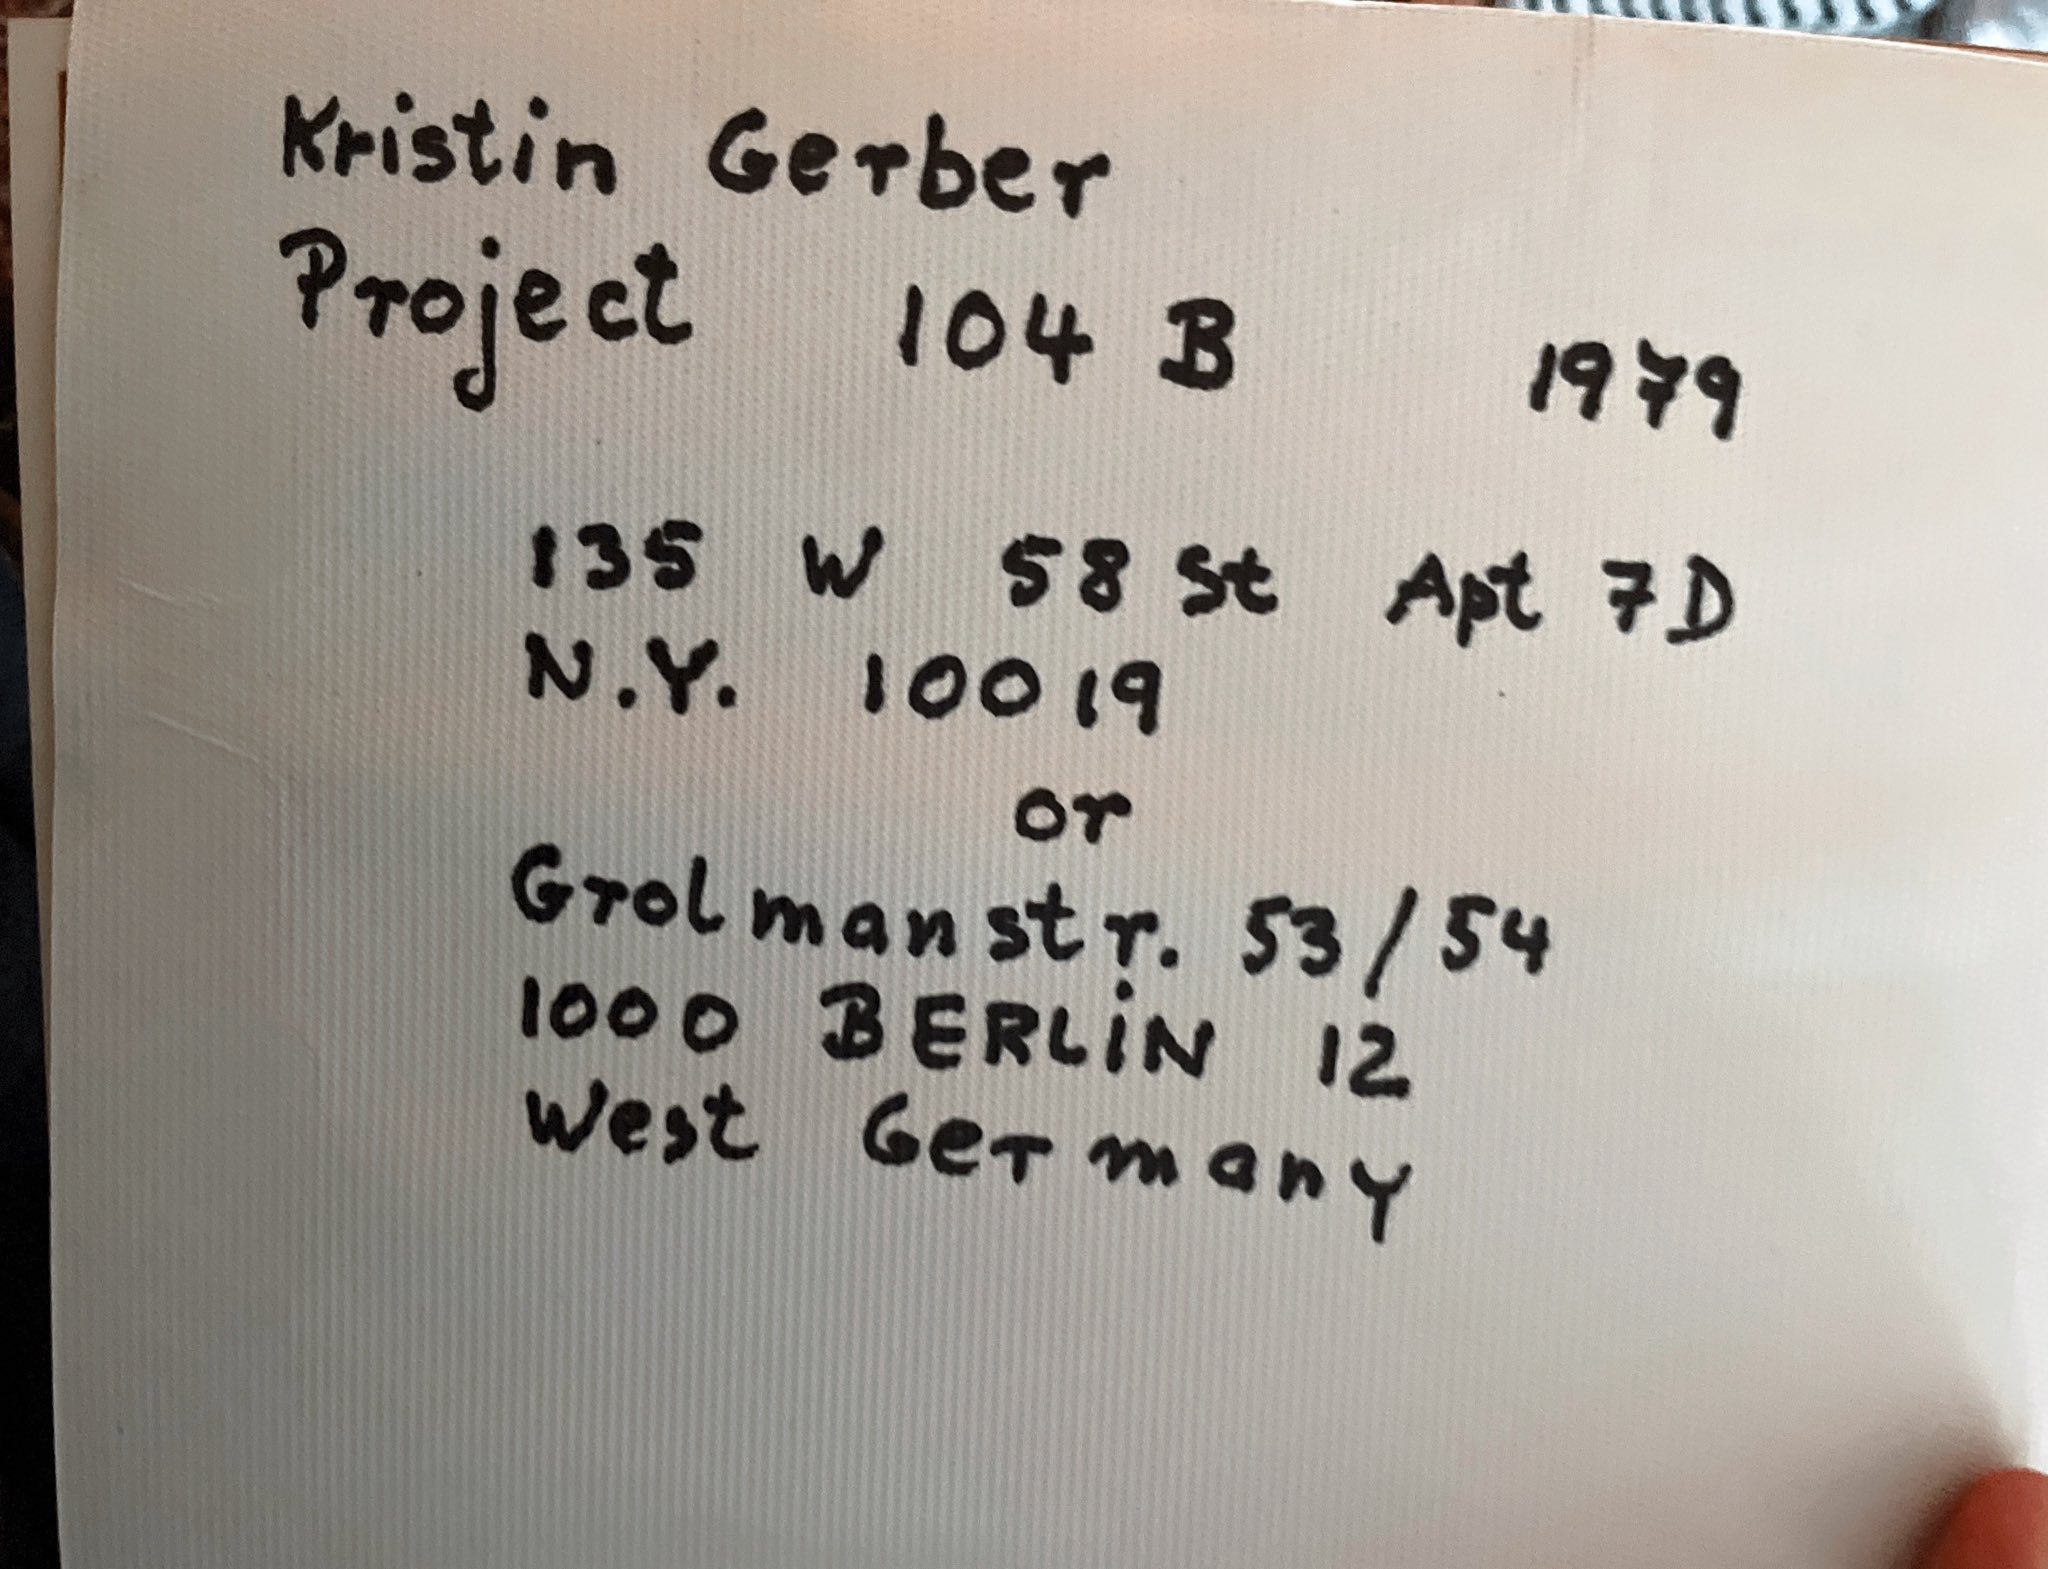 Kristin Gerber
Project 104 B 1979
135 W 58 St Apt 7D
N.Y. 10019
or
Grolmanstr. 53/54
1000 BERLiN 12
West Germany